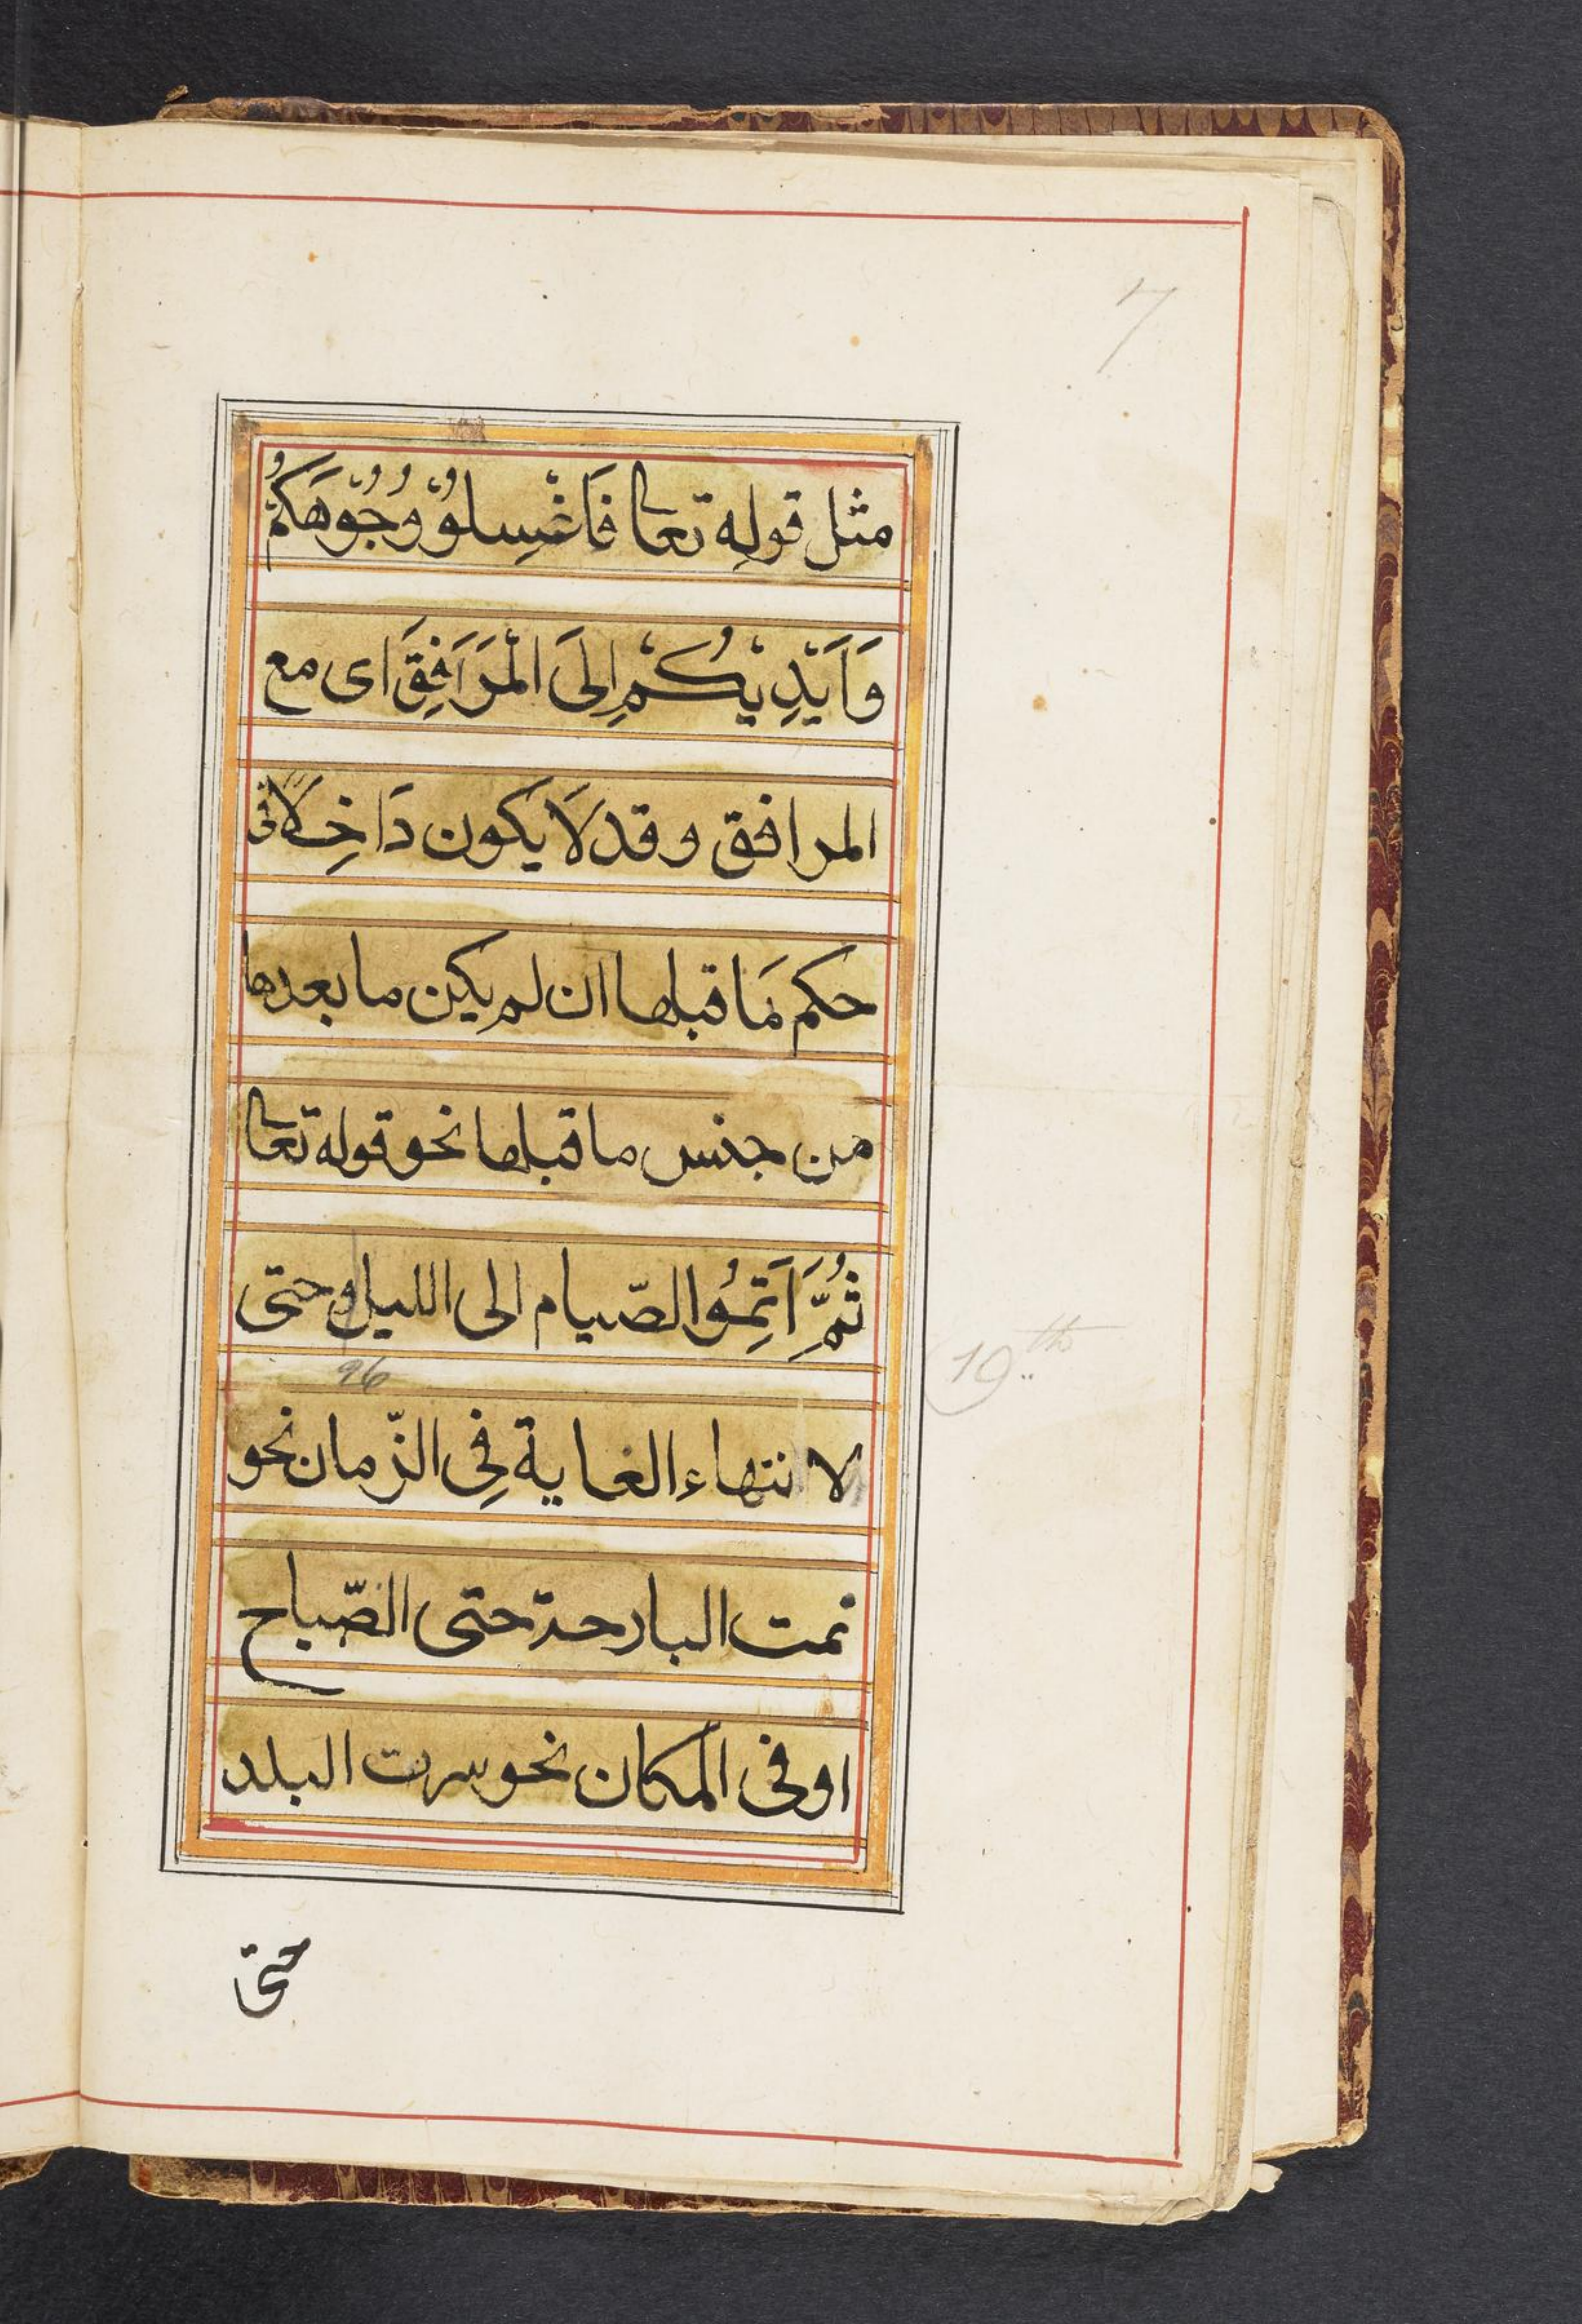 7
مثل قوله تعا فَاغْسِلوُْ وُجُوْهَكُمْ
وَاَيْدِيْكُمْ اِلَى الْمَرَافِقَ اى مع
المرافق و قد لَا يكون دَاخِلاً فى
حكم مَا قبلها ان لم يكن ما بعدها
من جنس ما قبلها نحو قوله تعا
ثُمَّ اَتِمُوا الصّيام الى الليل و حتى
96
19th
لا نتهاء الغاية فِى الزّمان نحو
نمت البارحة حتى الصّباح
او فى المكان نحو سرت البلد
حتى